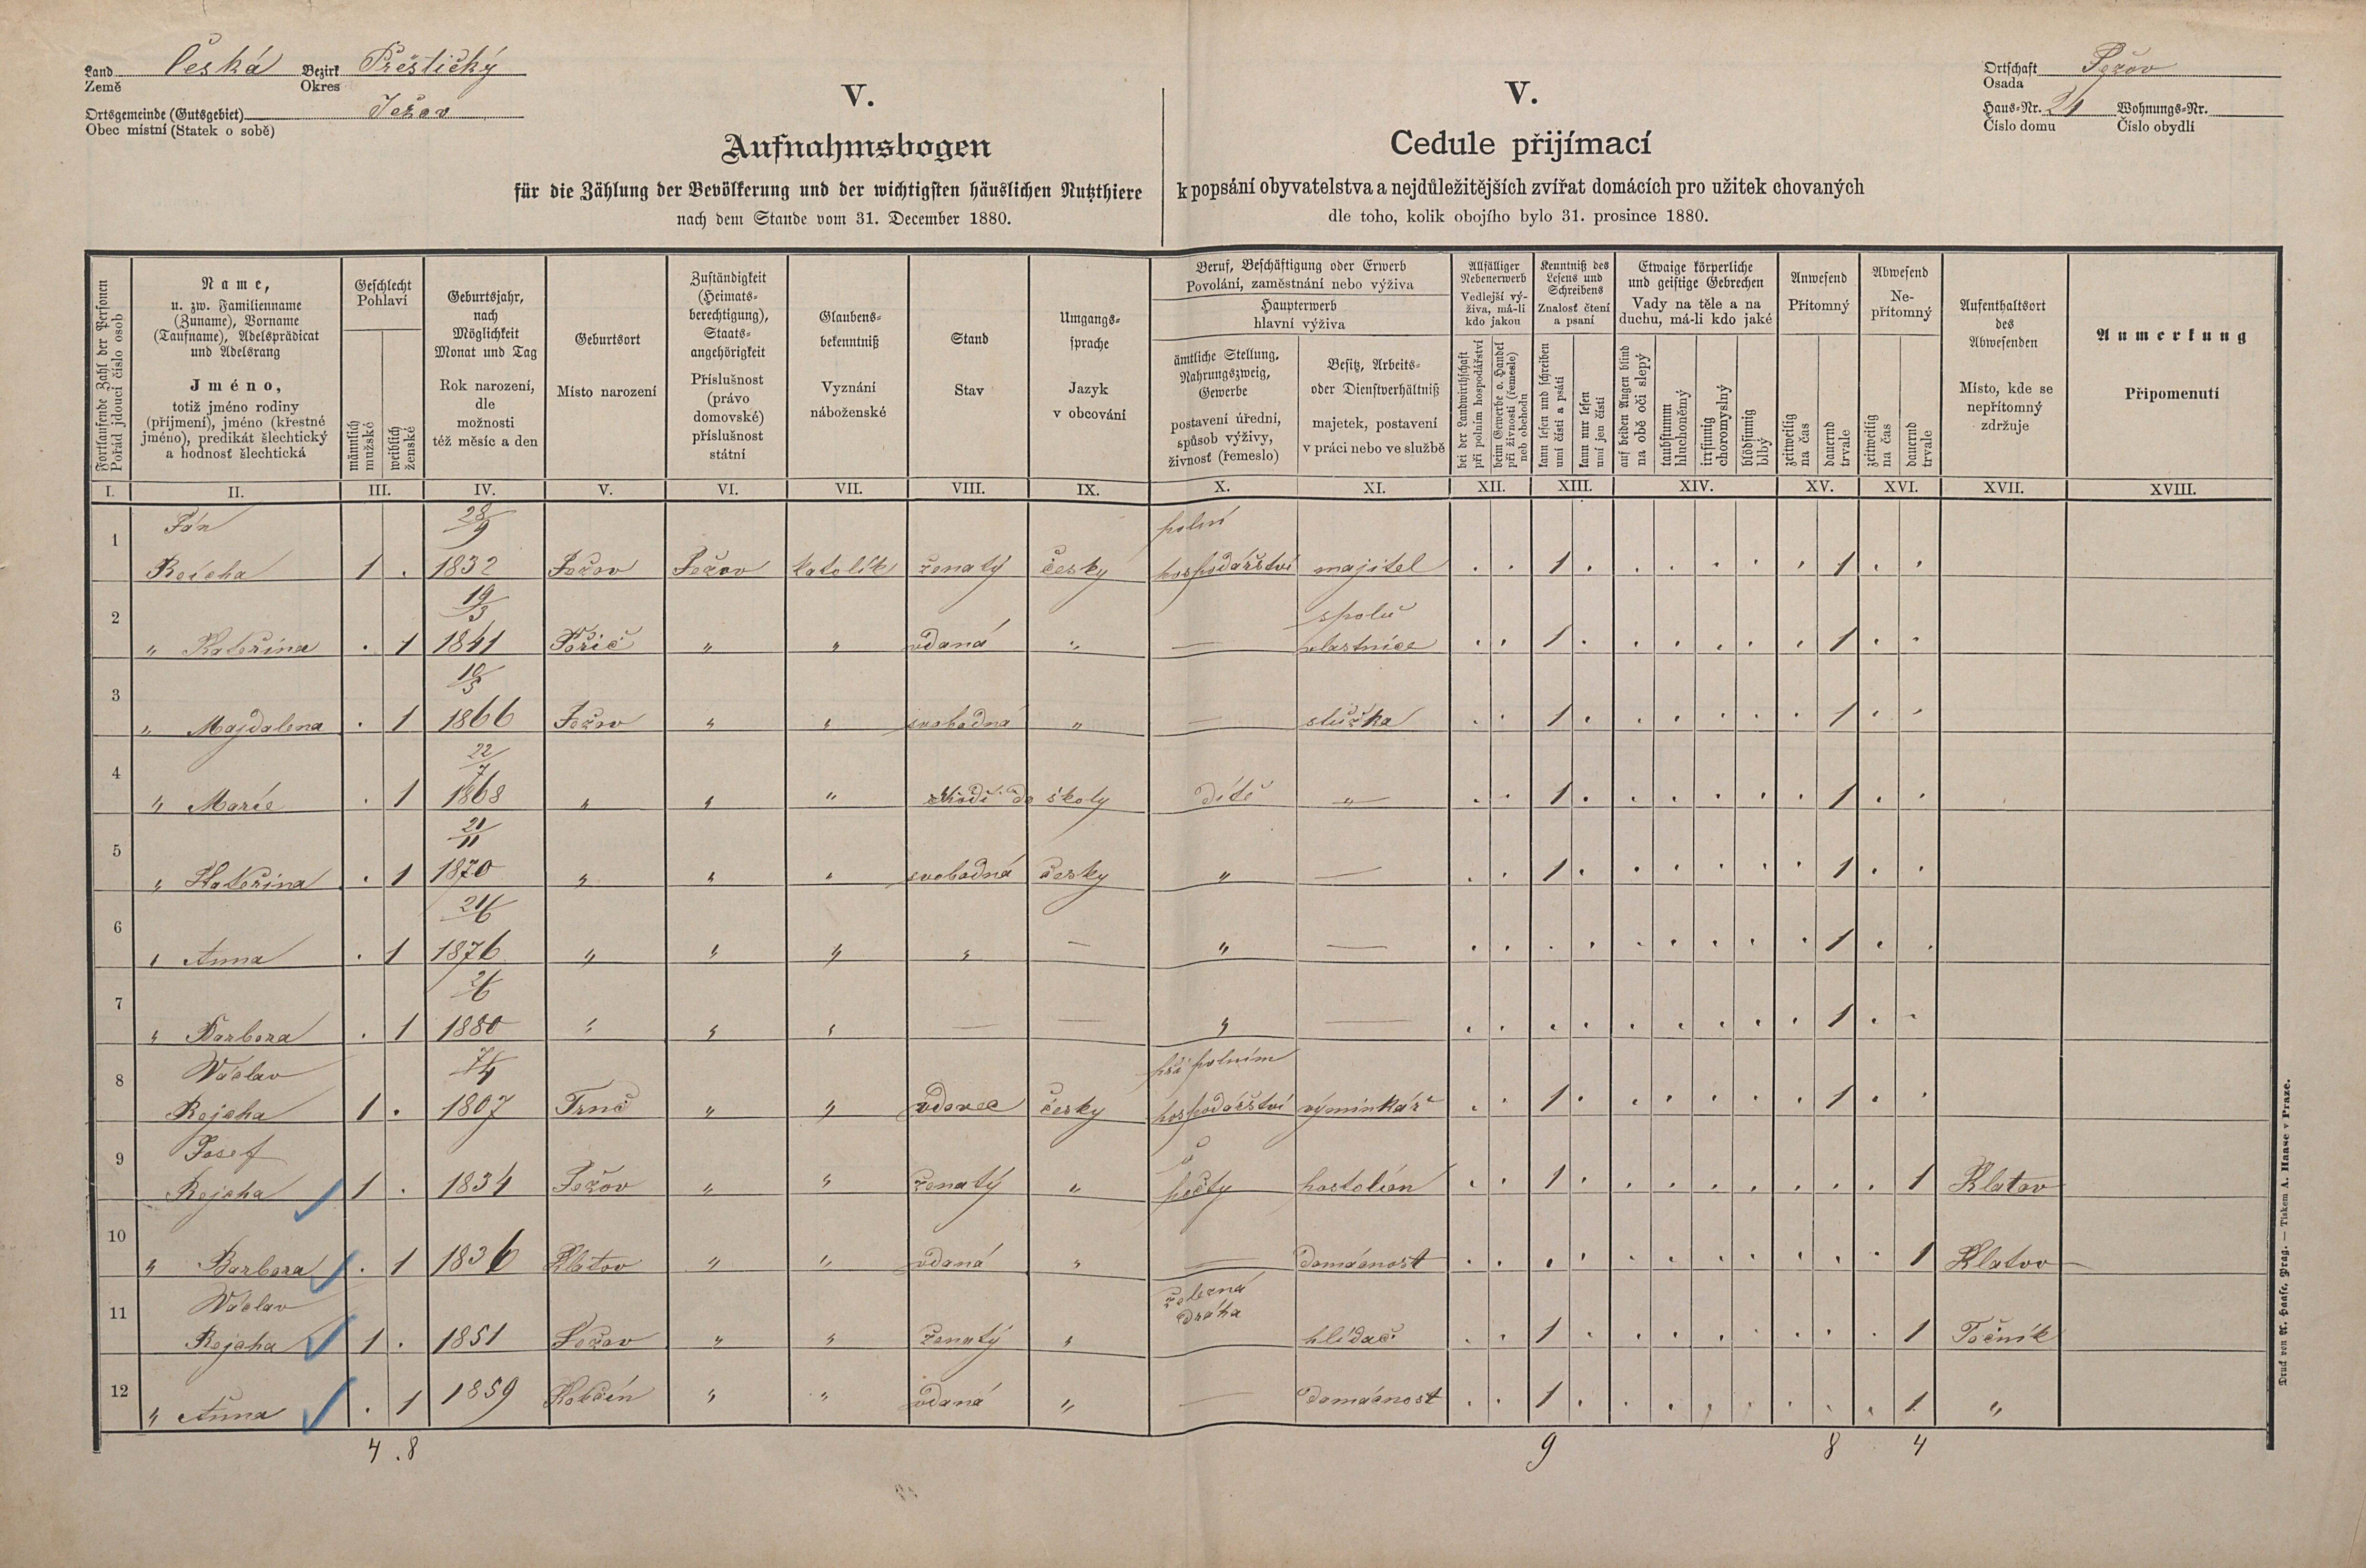 Land Česká Bezirk Přeštický
Země Okres
Ortsgemeinde (Gutsgebiet) Ježov
Obec místní (Statek o sobě)
V.
Aufnahmsbogen
für die Zählung der Bevölkerung und der wichtigsten häuslichen Nutzthiere
nach dem Stande vom 31. December 1880.
V.
Cedule přijímací
k popsání obyvatelstva a nejdůležitějších zvířat domácích pro užitek chovaných
dle toho, kolik obojího bylo 31. prosince 1880.
Ortschaft Ježov
Osada
Haus-Nr. 21 Wohnungs-Nr.
Číslo domu Číslo obydlí
Fortlaufende Zahl der Personen
Pořád jdoucí číslo osob
Name,
u. zw. Familienname
(Zuname), Vorname
(Taufname), Adelsprädicat
und Adelsrang
Jméno,
totiž jméno rodiny
(příjmení), jméno (křestné
jméno), predikát šlechtický
a hodnosť šlechtická
Geschlecht
Pohlaví
männlich
mužské
weiblich
ženské
Geburtsjahr,
nach
Möglichkeit
Monat und Tag
Rok narození,
dle
možnosti
též měsíc a den
Geburtsort
Místo narození
Zuständigkeit
(Heimats-
berechtigung),
Staats-
angehörigkeit
Příslušnost
(právo
domovské)
příslušnost
státní
Glaubens-
bekenntniß
Vyznání
náboženské
Stand
Stav
Umgangs-
sprache
Jazyk
v obcování
Beruf, Beschäftigung oder Erwerb
Povolání, zaměstnání nebo výživa
Haupterwerb
hlavní výživa
ämtliche Stellung,
Nahrungszweig,
Gewerbe
postavení úřední,
spůsob výživy,
živnosť (řemeslo)
Besitz, Arbeits-
oder Dienstverhältniß
majetek, postavení
v práci nebo ve službě
Allfälliger
Nebenerwerb
Vedlejší vý-
živa, má-li
kdo jakou
bei der Landwirthschaft
při polním hospodářství
beim Gewerbe o. Handel
při živnosti (řemesle)
neb obchodu
Kenntniß des
Lesens und
Schreibens
Znalosť čtení
a psaní
kann lesen und schreiben
umí čísti a psáti
kann nur lesen
umí jen čísti
Etwaige körperliche
und geistige Gebrechen
Vady na těle a na
duchu, má-li kdo jaké
auf beiden Augen blind
na obě oči slepý
taubstumm
hluchoněmý
irrsinnig
choromyslný
blödsinnig
blbý
Anwesend
Přítomný
zeitweilig
na čas
dauernd
trvale
Abwesend
Ne-
přítomný
zeitweilig
na čas
dauernd
trvale
Aufenthaltsort
des
Abwesenden
Místo, kde se
nepřítomný
zdržuje
Anmerkung
Připomenutí
I. II. III. IV. V. VI. VII. VIII. IX. X. XI. XII. XIII. XIV. XV. XVI. XVII. XVIII.
Ján 28/9 polní
1 Rejcha 1 . 1832 Ježov Ježov katolík ženatý česky hospodářství majitel . . 1 . . . . . . 1 . .
19/3 spolu
2 " Kateřina . 1 1841 Poříč " " vdaná " — vlastnice . . 1 . . . . . . 1 . .
10/5
3 " Majdalena . 1 1866 Ježov " " svobodná " — služka . . 1 . . . . . . 1 . .
22/7
4 " Marie . 1 1868 " " " chodí do školy dítě " . . 1 . . . . . . 1 . .
21/11
5 " Kateřina . 1 1870 " " " svobodná česky " — . . 1 . . . . . . 1 . .
21/6
6 " Anna . 1 1876 " " " " — " — . . . . . . . . . 1 . .
2/6
7 " Barbora . 1 1880 " " " — — " — . . . . . . . . . 1 . .
Václav 7/4 při polním
8 Rejcha 1 . 1807 Trnč " " vdovec česky hospodářství výminkář . . 1 . . . . . . 1 . .
Josef u
9 Rejcha 1 . 1834 Ježov " " ženatý " pošty postolion . . 1 . . . . . . . . 1 Klatov
10 " Barbora . 1 1836 Klatov " " vdaná " — domácnost . . . . . . . . . . . 1 Klatov
Václav železná
dráha
11 Rejcha 1 . 1851 Ježov " " ženatý " hlídač . . 1 . . . . . . . . 1 Točník
12 " Anna . 1 1859 Kokšín " " vdaná " — domácnost . . 1 . . . . . . . . 1 "
4 . 8 9 8 4
Druck von A. Haase, Prag. — Tiskem A. Haase v Praze.